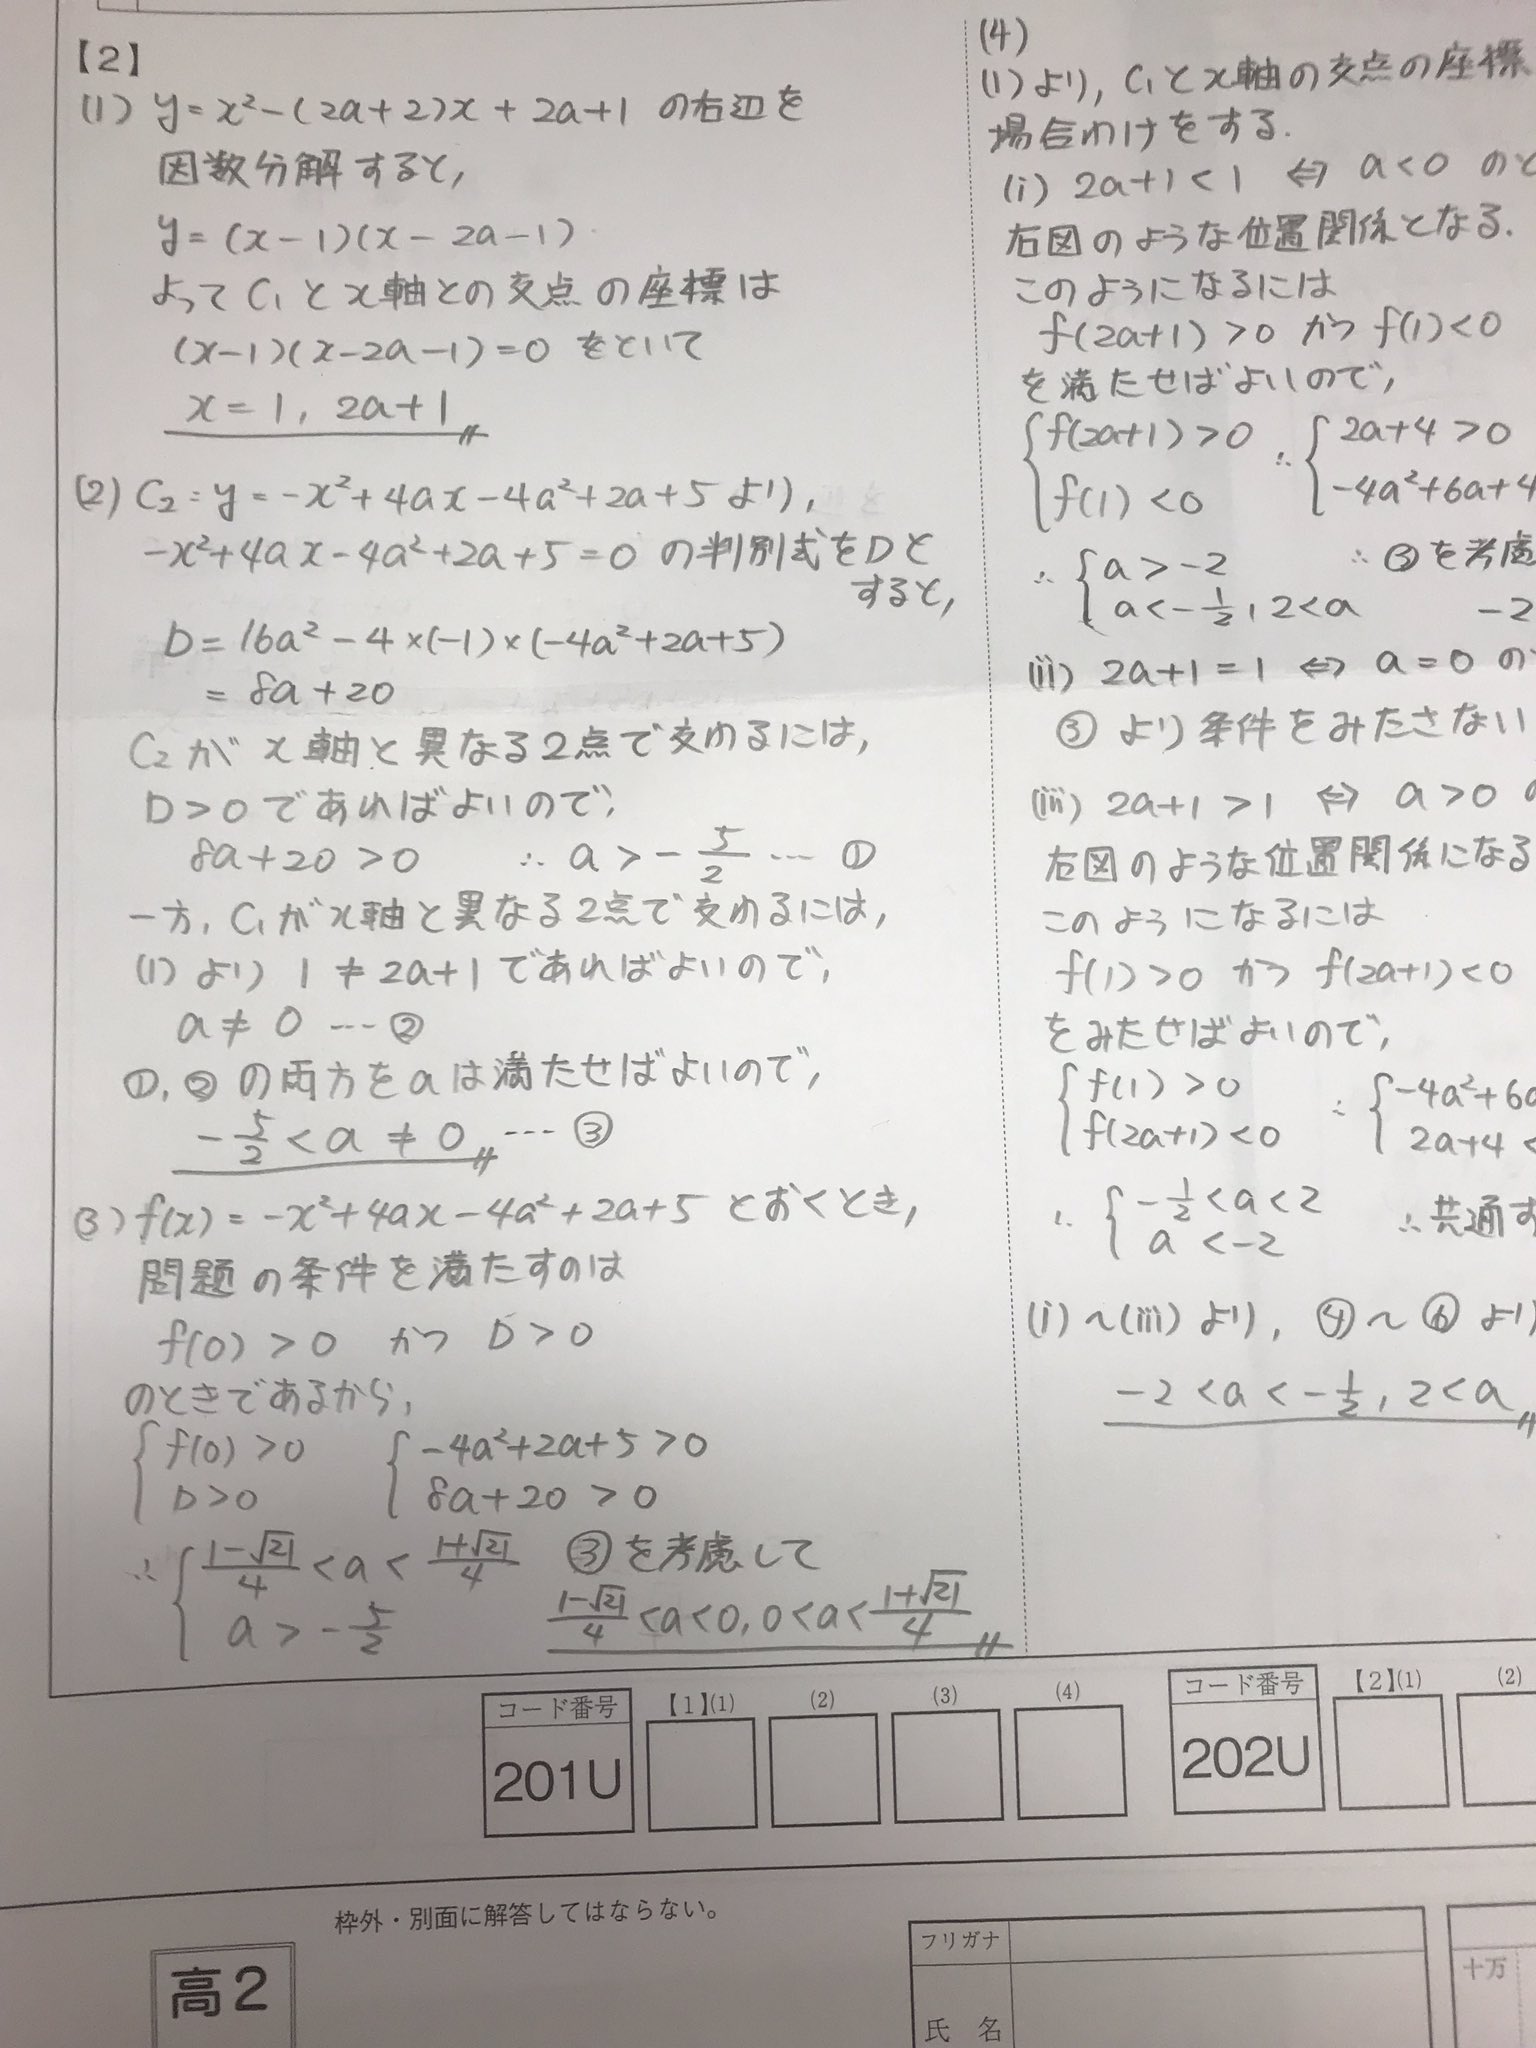 【2】
(1) y=x²-(2a+2)x+2a+1 の右辺を
因数分解すると,
y=(x-1)(x-2a-1)
よってC₁とx軸との交点の座標は
(x-1)(x-2a-1)=0 をといて
x=1, 2a+1
(2) C₂:y=-x²+4ax-4a²+2a+5 より,
-x²+4ax-4a²+2a+5=0 の判別式をDと
すると,
D=16a²-4×(-1)×(-4a²+2a+5)
=8a+20
C₂がx軸と異なる2点で交わるには,
D>0であればよいので,
8a+20>0 ∴ a>-5/2 … ①
一方, C₁がx軸と異なる2点で交わるには,
(1)より 1≠2a+1であればよいので,
a≠0 … ②
①,②の両方をaは満たせばよいので,
-5/2<a≠0 … ③
(3) f(x)=-x²+4ax-4a²+2a+5 とおくとき,
問題の条件を満たすのは
f(0)>0 かつ D>0
のときであるから,
{f(0)>0 {-4a²+2a+5>0
D>0 8a+20>0
∴ {(1-√21)/4<a<(1+√21)/4 ③を考慮して
a>-5/2 (1-√21)/4<a<0, 0<a<(1+√21)/4
(4)
(1)より, C₁とx軸の交点の座標
場合わけをする.
(i) 2a+1<1 ⇔ a<0 のと
右図のような位置関係となる.
このようになるには
f(2a+1)>0 かつ f(1)<0
を満たせばよいので,
{f(2a+1)>0 ∴ {2a+4>0
f(1)<0 -4a²+6a+4
∴ {a>-2 ∴ ③を考慮
a<-1/2, 2<a -2
(ii) 2a+1=1 ⇔ a=0 の
③より条件をみたさない
(iii) 2a+1>1 ⇔ a>0
右図のような位置関係になる
このようになるには
f(1)>0 かつ f(2a+1)<0
をみたせばよいので,
{f(1)>0 ∴ {-4a²+6a
f(2a+1)<0 2a+4<
∴ {-1/2<a<2 ∴共通す
a<-2
(i)~(iii)より, ④~⑥より
-2<a<-1/2, 2<a
コード番号 【1】(1) (2) (3) (4) コード番号 【2】(1) (2)
201U 202U
枠外・別面に解答してはならない。
高2
フリガナ
氏 名
十万